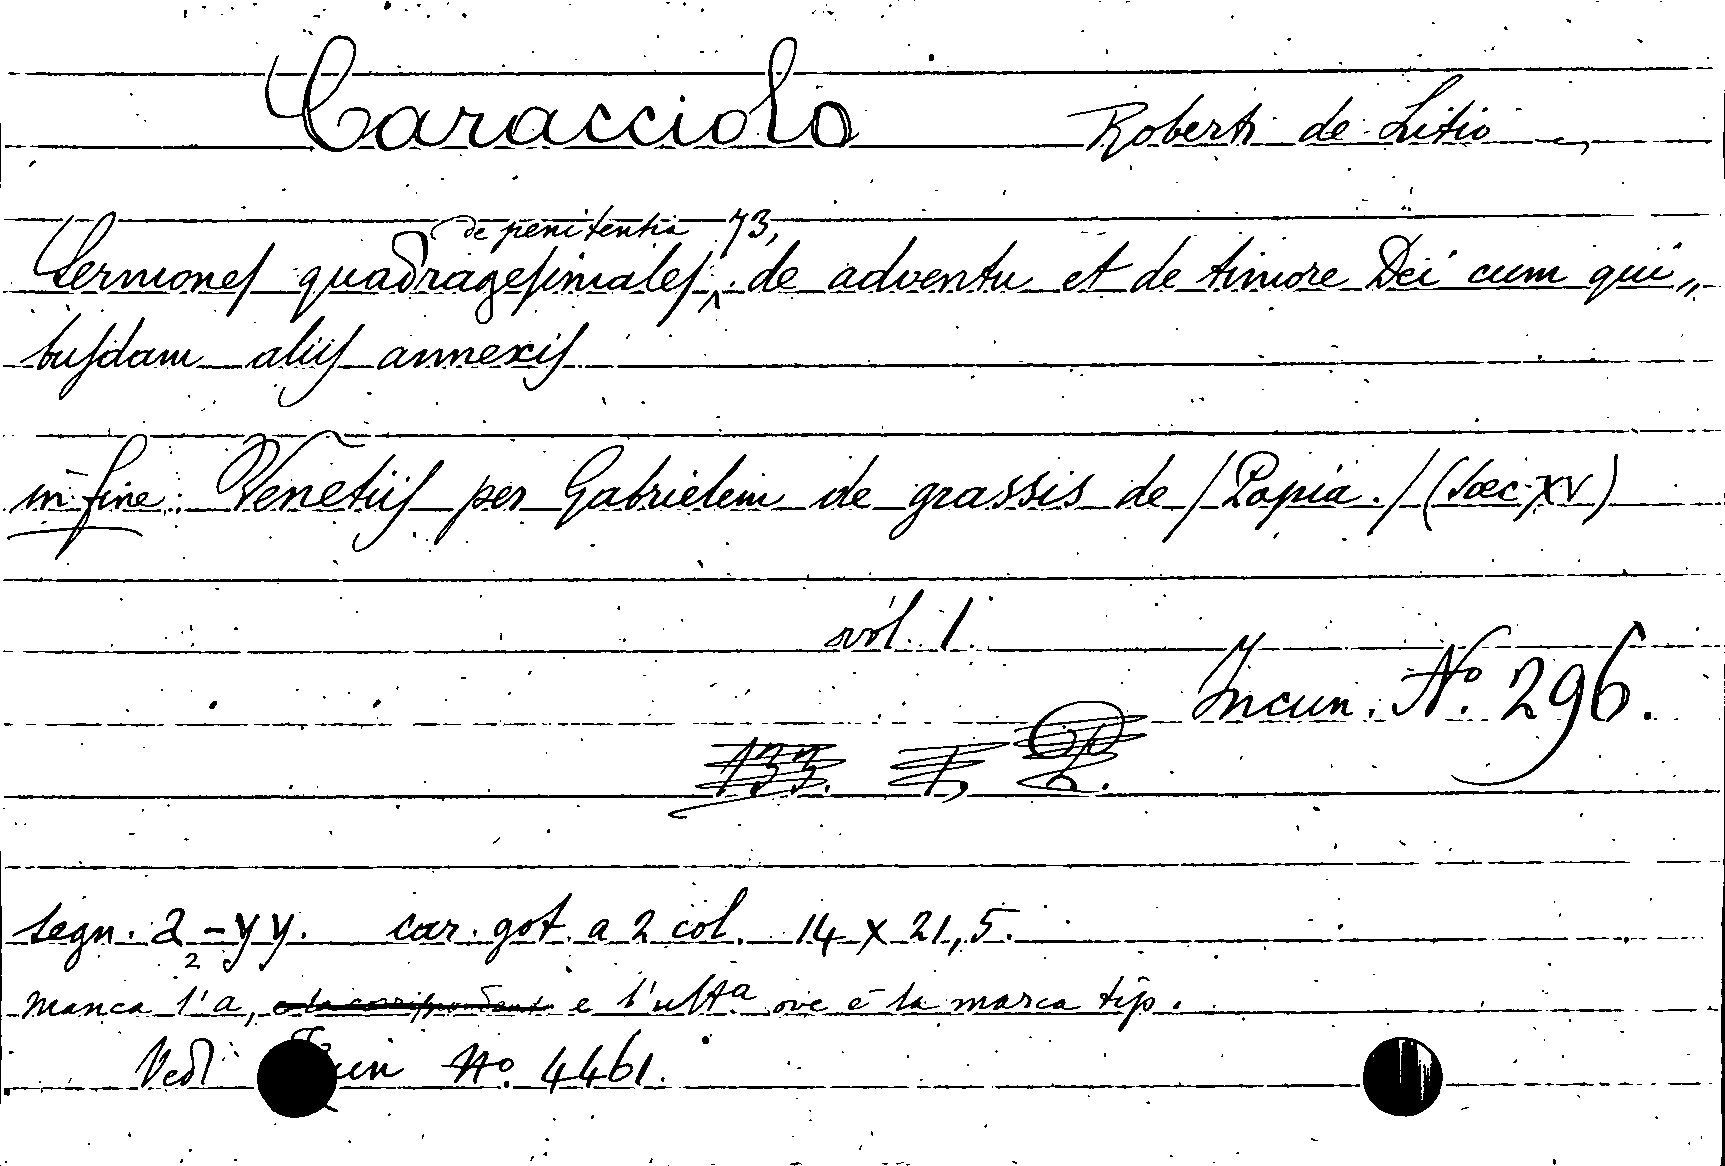 Caracciolo Roberti de Litio
de penitentia 73,
Sermones quadragesimales, de adventu et de timore Dei cum qui„
busdam aliis annexis
in fine: Venetiis per Gabrielem de grassis de / Papia. / (Saec. XV)
vol. 1.
Incun. No. 296.
133.
segn. a2 - yy. car. got. a 2 col. 14 x 21,5.
manca l'a, e l'ulta ove è la marca tip.
Vedi No. 4461.